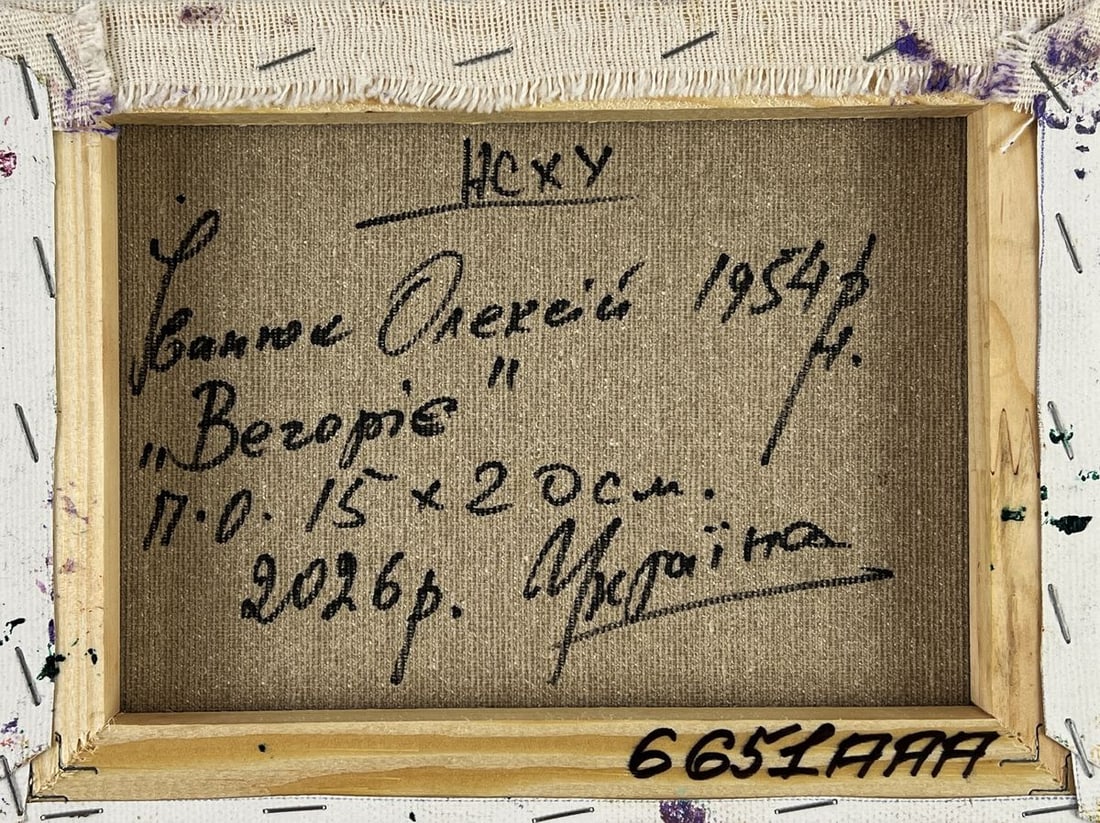 НСХУ
Іванюк Олексій 1954р
н.
„Вегоріє"
п.о. 15 х 20см.
2026р. Україна
6651ААА